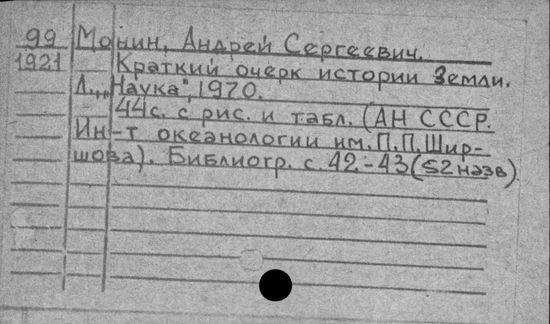 99 Монин, Андрей Сергеевич.
1921 Краткий очерк истории Земли.
Л., "Наука", 1970.
44с. с рис. и табл. (АН СССР.
Ин-т океанологии им. П.П. Шир-
шова). Библиогр. с. 42-43 (52 назв).